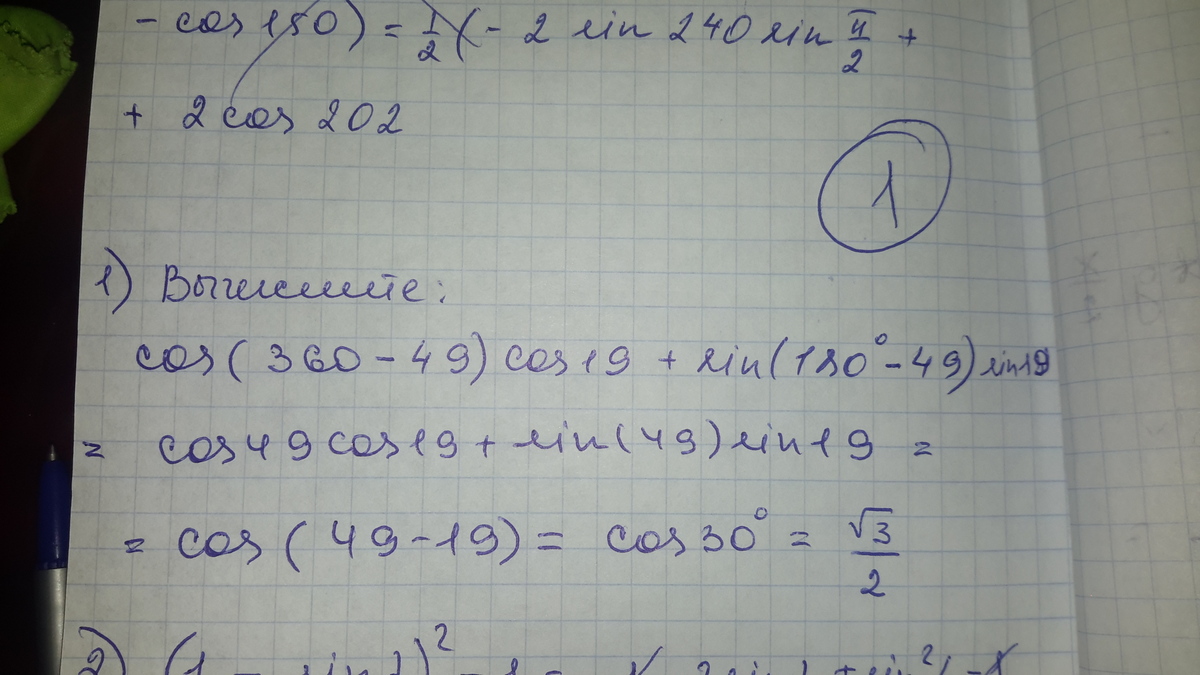 - cos 150) = 1/2 (- 2 sin 240 sin π/2 +
+ 2 cos 202
1
1) Вычислите:
cos( 360 - 49) cos 19 + sin(180° - 49) sin 19
= cos 49 cos 19 + sin(49) sin 19 =
= cos ( 49 - 19) = cos 30° = √3/2
2) (1 - sin